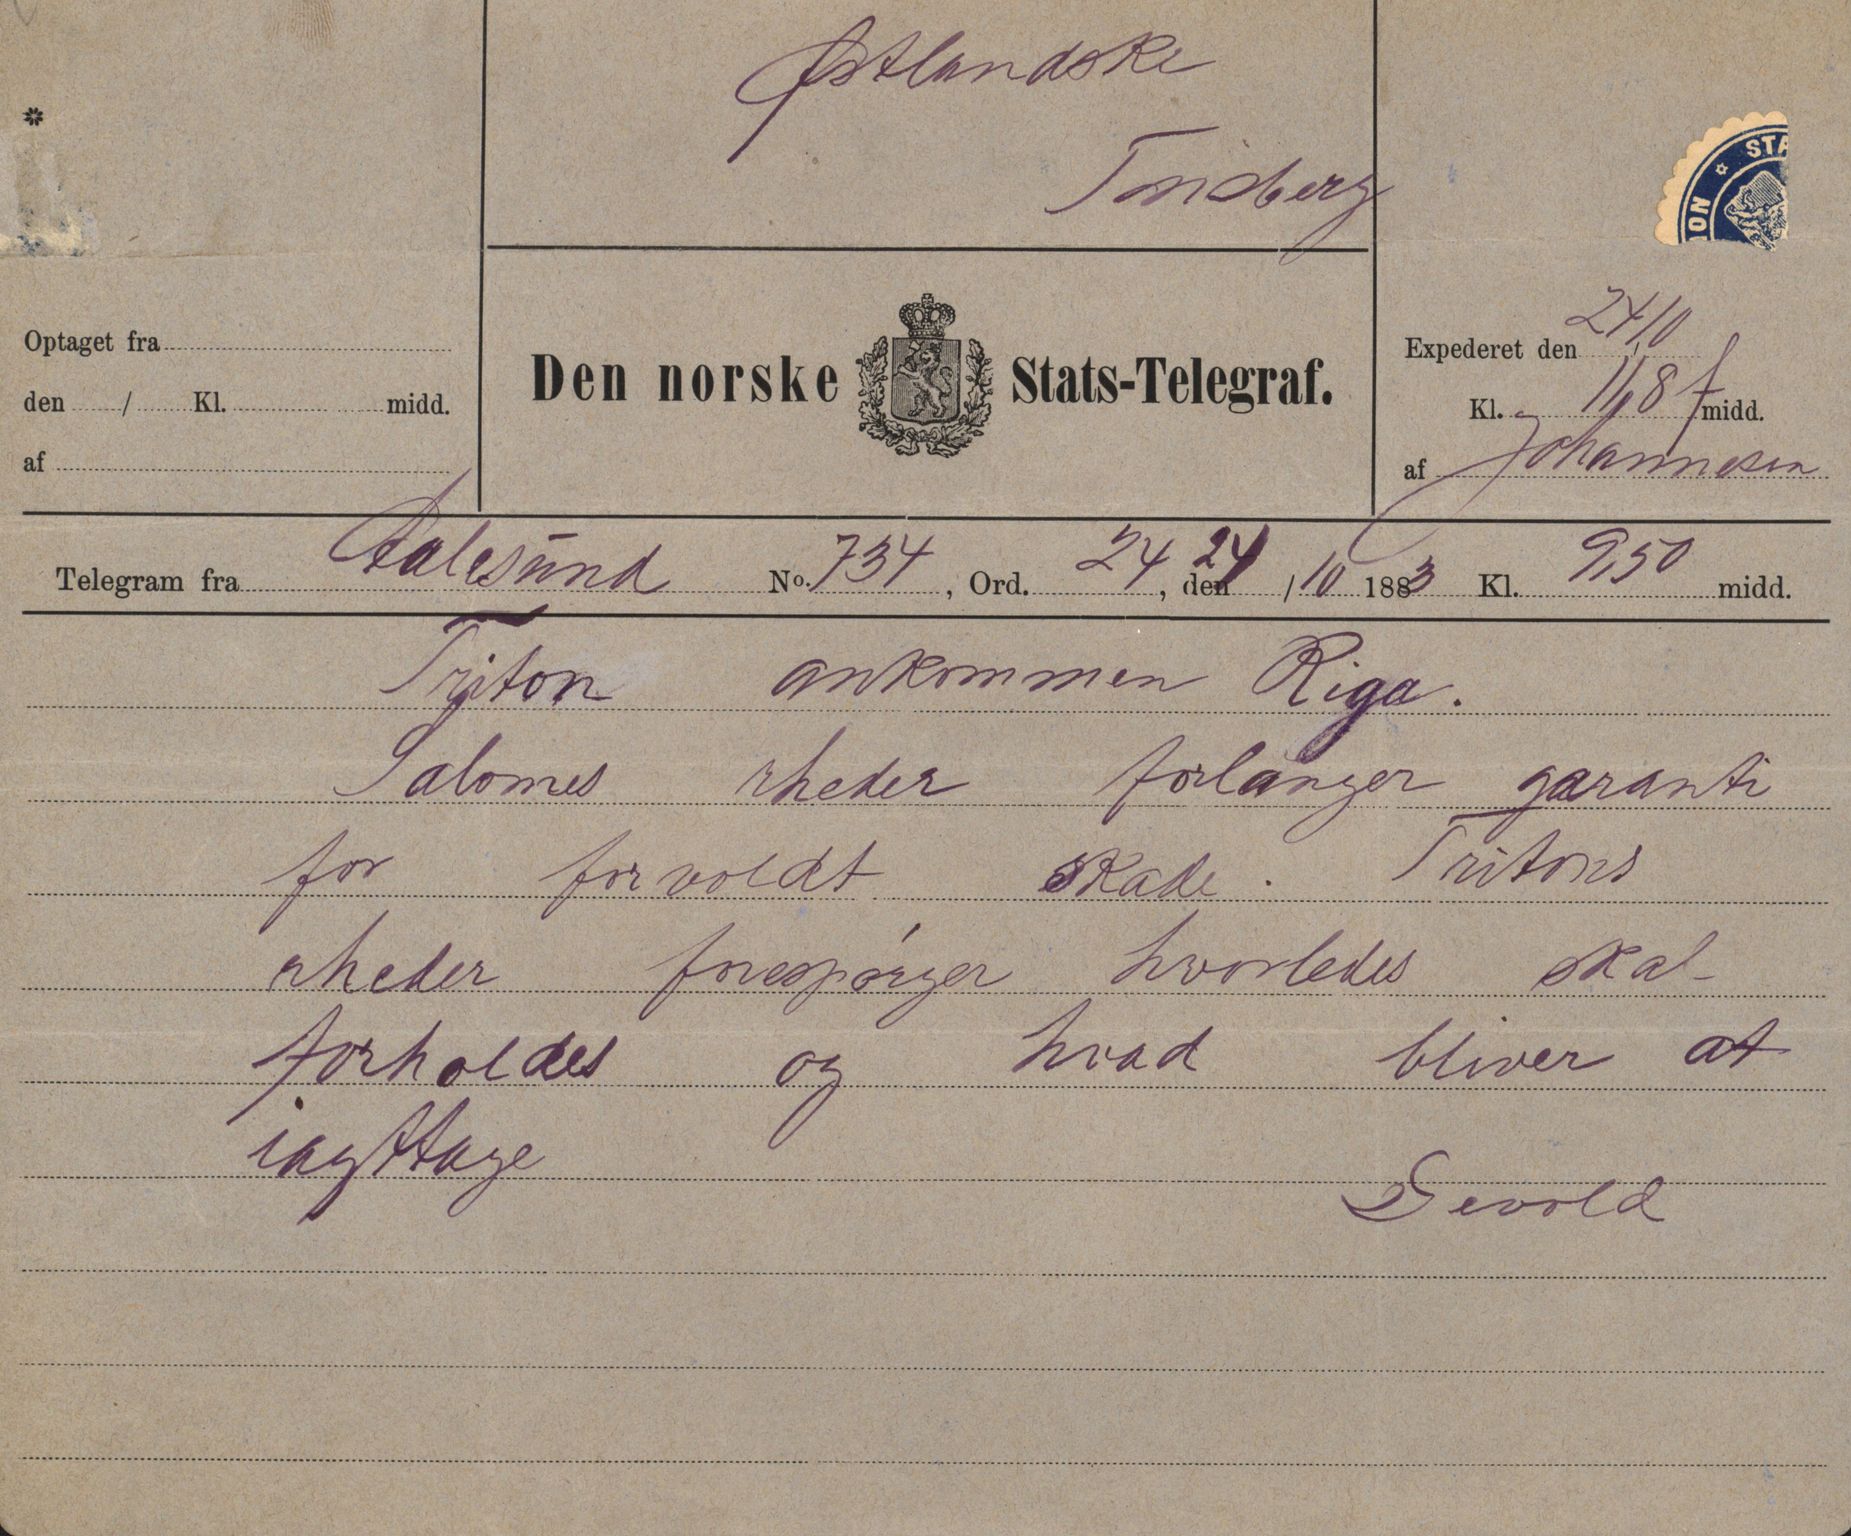 Østlandske
Tønsberg
*
STA
ION
Optaget fra
den / Kl. midd.
af
Den norske Stats-Telegraf.
Expederet den 24/10
Kl. 11,8 f midd.
af Johannesen
Telegram fra Aalesund No. 734, Ord. 24, den 24/10 1883 Kl. 9,50 midd.
Triton ankommen Riga.
Salomes rheder forlanger garanti
for forvoldt skade. Tritons
rheder forespørger hvorledes skal
forholdes og hvad bliver at
iagttage
Devold